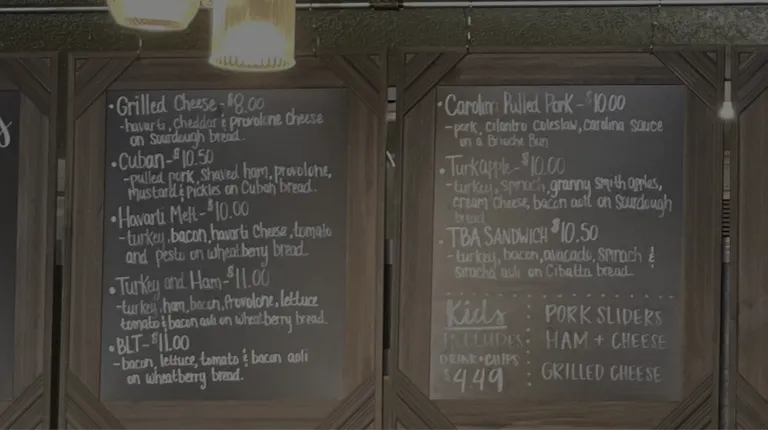 • Grilled Cheese - $8.00
- havarti, cheddar & provolone cheese
on sourdough bread.
• Cuban - $10.50
- pulled pork, shaved ham, provolone,
mustard & pickles on Cuban bread.
• Havarti Melt - $10.00
- turkey, bacon, havarti cheese, tomato
and pesto on wheatberry bread.
• Turkey and Ham - $11.00
- turkey, ham, bacon, provolone, lettuce
tomato & bacon aoli on wheatberry bread.
• BLT - $11.00
- bacon, lettuce, tomato & bacon aoli
on wheatberry bread.
• Carolina Pulled Pork - $10.00
- pork, cilantro coleslaw, carolina sauce
on a Brioche Bun
• Turkapple - $10.00
- turkey, spinach, granny smith apples,
cream cheese, bacon aoli on sourdough
bread
• TBA SANDWICH $10.50
- turkey, bacon, avocado, spinach &
siracha aoli on Cibatta bread.
Kids
INCLUDES
DRINK + CHIPS
$4.49
PORK SLIDERS
HAM + CHEESE
GRILLED CHEESE